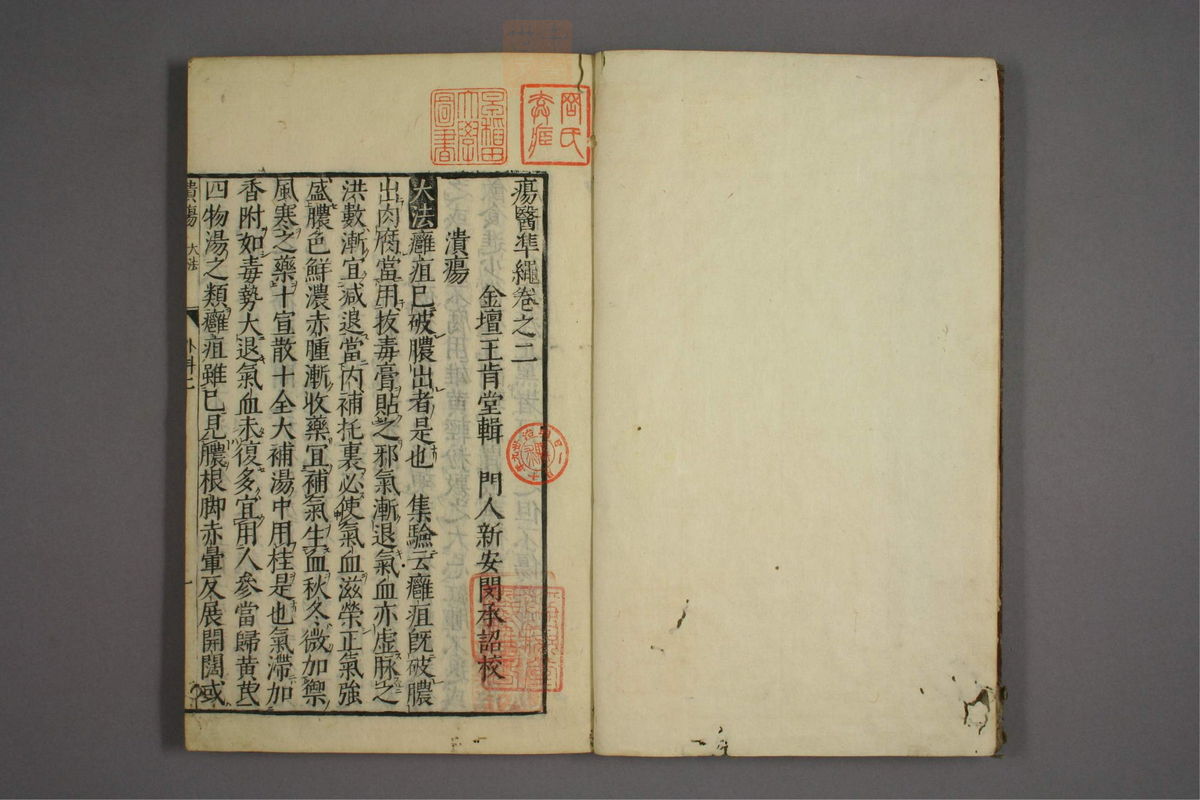 瘍醫準繩卷之二
金壇王肯堂輯 門人新安閔承詔校
潰瘍
大法癰疽已破膿出者是也 集驗云癰疽既破膿
出肉腐當用拔毒膏貼之邪氣漸退氣血亦虛脉之
洪數漸宜減退當內補托裏必使氣血滋榮正氣強
盛膿色鮮濃赤腫漸收藥宜補氣生血秋冬微加禦
風寒之藥十宣散十全大補湯中用桂是也氣滯加
香附如毒勢大退氣血未復多宜用人參當歸黃芪
四物湯之類癰疽雖已見膿根脚赤暈反展開濶或
潰瘍 大法 外科二
早稻田大學圖書